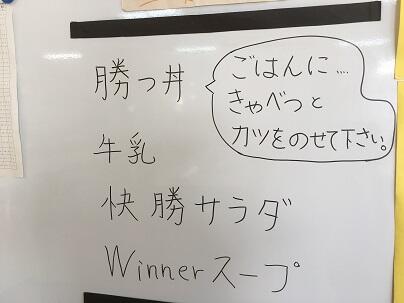 勝つ丼
ごはんに……
きゃべつと
カツをのせて下さい。
牛乳
快勝サラダ
Winnerスープ